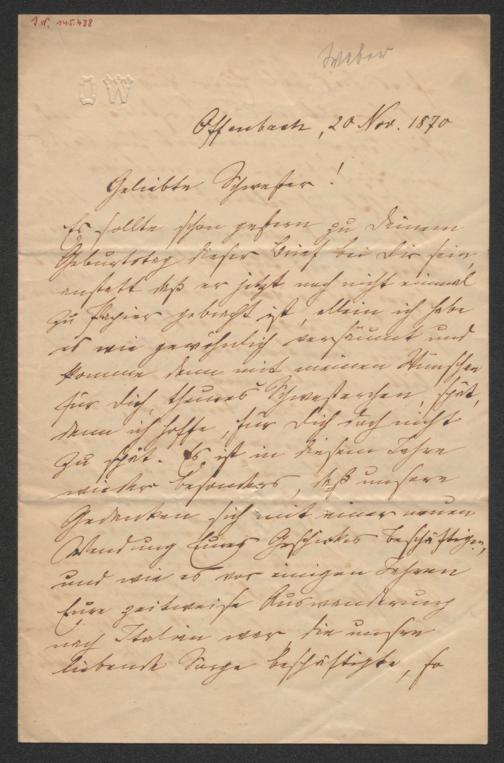 I.N. 145.438
Weber
OW
Offenbach, 20 Nov. 1870
Geliebte Schwester!
Es sollte schon gestern zu Deinem
Geburtstag dieser Brief bei Dir sein
anstatt daß er jetzt noch nicht einmal
zu Papier gebracht ist, allein ich habe
es wie gewöhnlich versäumt und
komme denn mit meinen Wünschen
für Dich, theures Schwesterchen, spät,
denn ich hoffe, für Dich doch nicht
zu spät. Es ist in diesem Jahre
wieder besonders, daß unsere
Gedenken sich mit einer neuen
Wendung Eures Geschickes beschäftigen,
und wie es vor einigen Jahren
Eure zeitweise Auswanderung
nach Italien war, die unsre
liebende Sorge beschäftigte, so